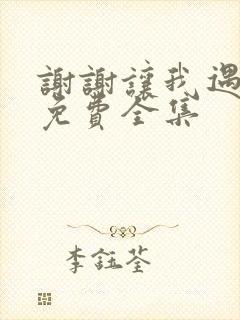 謝謝讓我遇
免費全集
李鈺荃